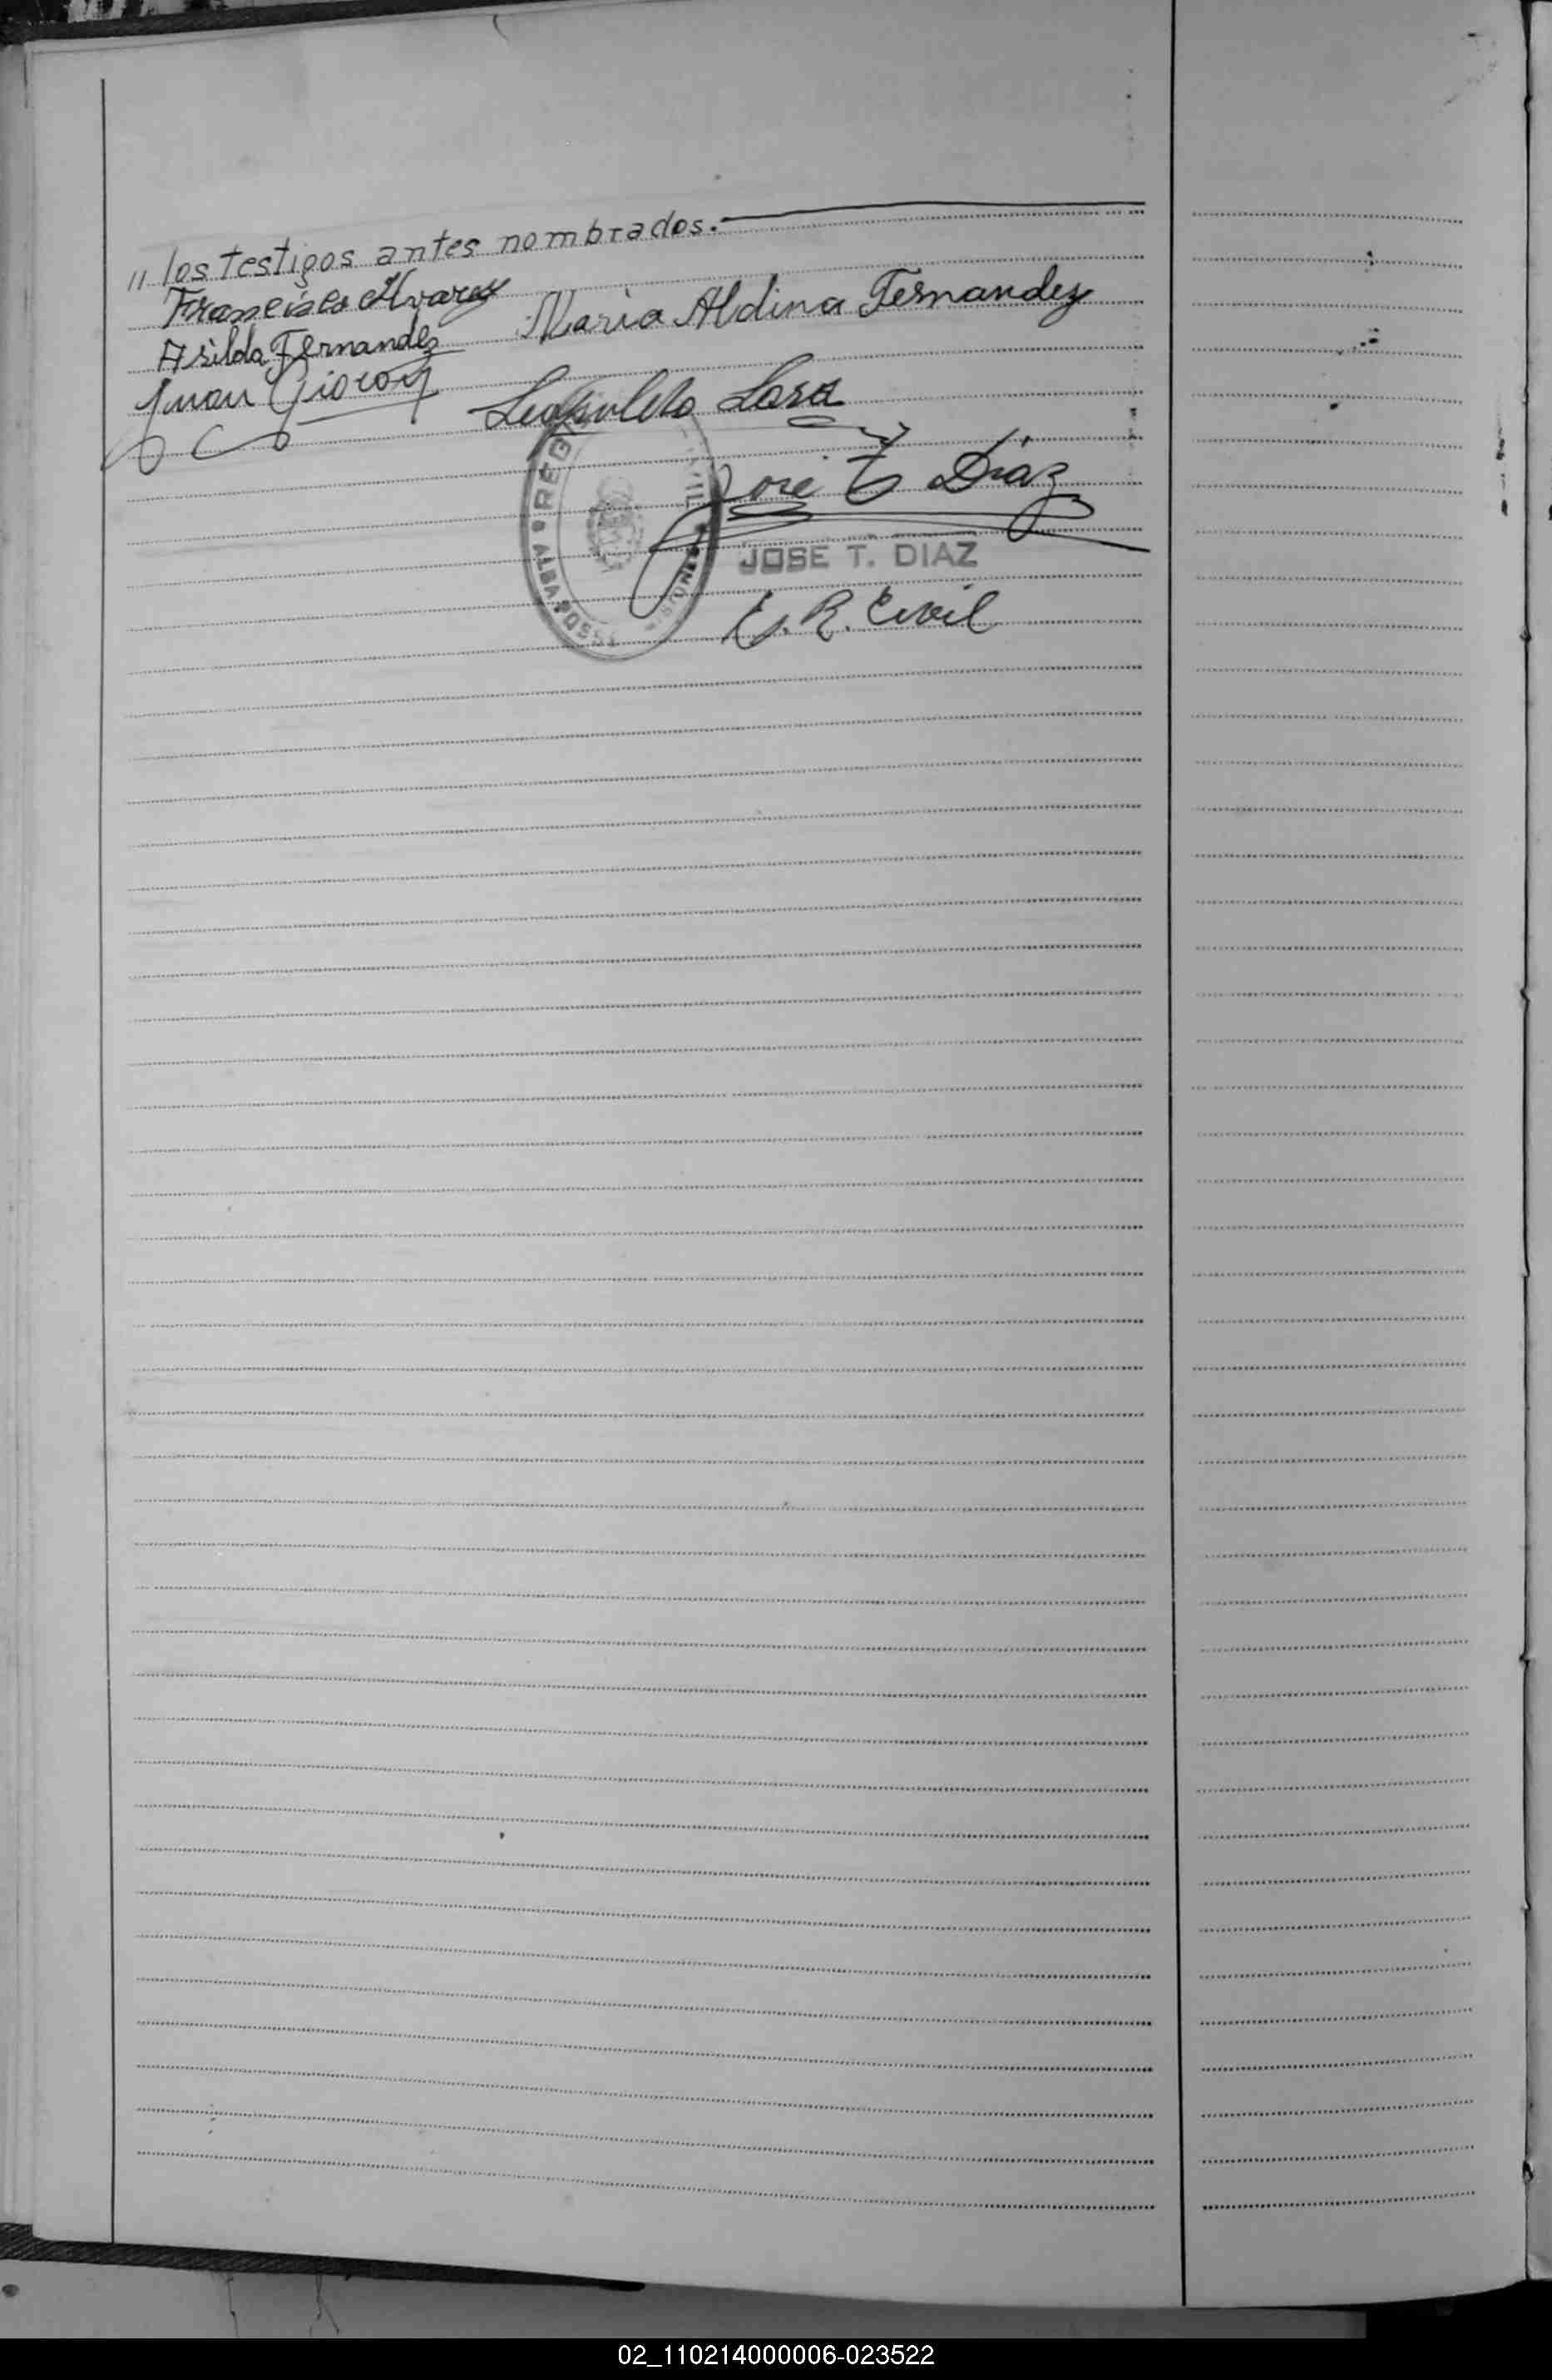 " los testigos antes nombrados.
Francisco Alvarez
Maria Aldina Fernandez
Asilda Fernandez
Juan
Leopoldo Lara
José T Diaz
REG CIVIL ALBA POSSE MISIONES
JOSE T. DIAZ
E. R. Civil
02_110214000006-023522